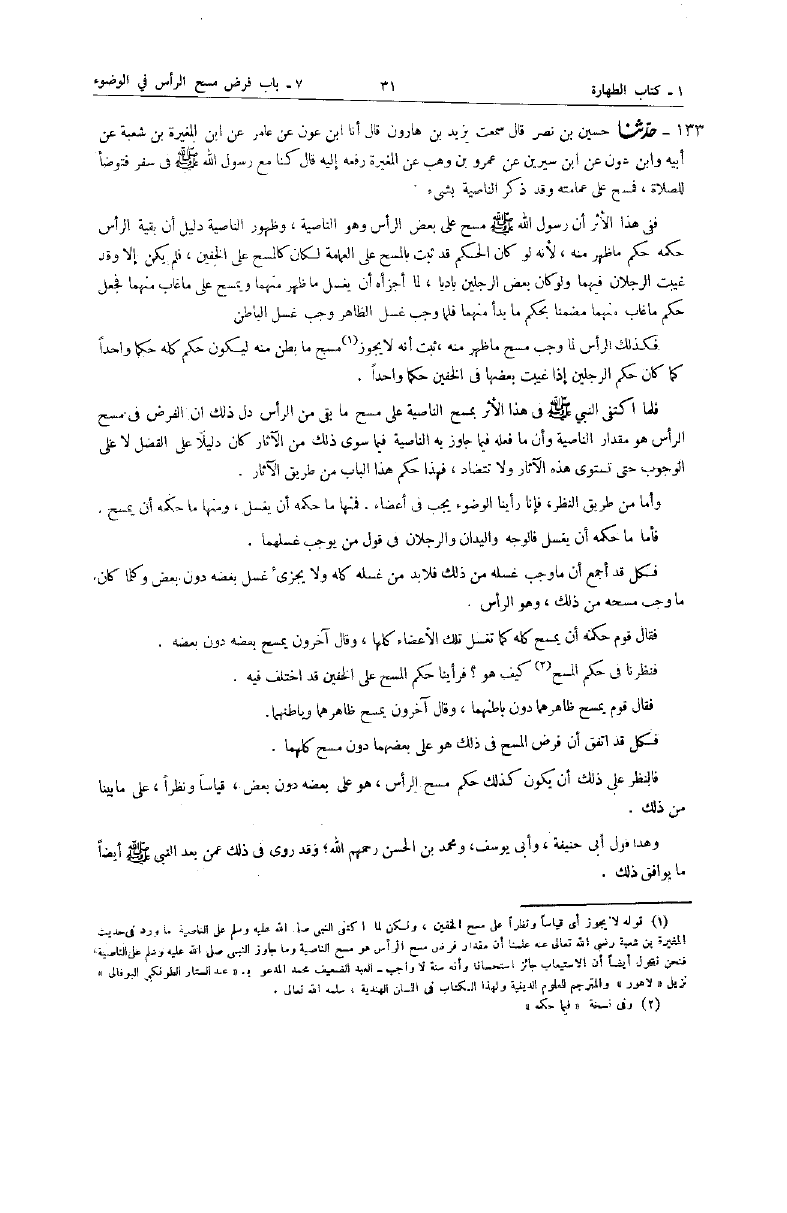 ١ - كتاب الطهارة ٣١ ٧ - باب فرض مسح الرأس في الوضوء
١٣٣ - حدثنا حسين بن نصر قال سمعت يزيد بن هارون قال أنا ابن عون عن عامر عن ابن المغيرة بن شعبة عن
أبيه وابن عون عن ابن سيرين عن عمرو بن وهب عن المغيرة رفعه إليه قال كنا مع رسول الله ﷺ فى سفر فتوضأ
للصلاة ، فمسح على عمامته وقد ذكر الناصية بشىء .
ففى هذا الأثر أن رسول الله ﷺ مسح على بعض الرأس وهو الناصية ، وظهور الناصية دليل أن بقية الرأس
حكمه حكم ماظهر منه ، لأنه لو كان الحكم قد ثبت بالمسح على العمامة لكان كالمسح على الخفين ، فلم يكن إلا وقد
غيبت الرجلان فيهما ولوكان بعض الرجلين باديا ، لما أجزأه أن يغسل ماظهر منهما ويمسح على ماغاب منهما فجعل
حكم ماغاب منهما مضمنا بحكم ما بدأ منهما فلما وجب غسل الظاهر وجب غسل الباطن
فكذلك الرأس لما وجب مسح ماظهر منه ،ثبت أنه لايجوز(١)مسح ما بطن منه ليكون حكم كله حكما واحداً
كما كان حكم الرجلين إذا غيبت بعضها فى الخفين حكما واحداً .
فلما اكتفى النبي ﷺ فى هذا الأثر بمسح الناصية على مسح ما بقى من الرأس دل ذلك ان الفرض فى مسح
الرأس هو مقدار الناصية وأن ما فعله فيما جاوز به الناصية فيما سوى ذلك من الآثار كان دليلاً على الفضل لا على
الوجوب حتى تستوى هذه الآثار ولا تتضاد ، فهذا حكم هذا الباب من طريق الآثار .
وأما من طريق النظر، فإنا رأينا الوضوء يجب فى أعضاء . فمنها ما حكمه أن يغسل ، ومنها ما حكمه أن يمسح .
فأما ما حكمه أن يغسل فالوجه واليدان والرجلان فى قول من يوجب غسلهما .
فكل قد أجمع أن ماوجب غسله من ذلك فلابد من غسله كله ولا يجزىء غسل بعضه دون بعض وكلما كان،
ما وجب مسحه من ذلك ، وهو الرأس .
فقال قوم حكمه أن يمسح كله كما تغسل تلك الأعضاء كلها ، وقال آخرون يمسح بعضه دون بعضه .
فنظرنا فى حكم المسح(٢) كيف هو ؟ فرأينا حكم المسح على الخفين قد اختلف فيه .
فقال قوم يمسح ظاهرهما دون باطنهما ، وقال آخرون يمسح ظاهرهما وباطنهما.
فكل قد اتفق أن فرض المسح فى ذلك هو على بعضهما دون مسح كلهما .
فالنظر على ذلك أن يكون كذلك حكم مسح الرأس ، هو على بعضه دون بعض ، قياساً ونظراً ، على مابينا
من ذلك .
وهذا قول أبى حنيفة ، وأبى يوسف، ومحمد بن الحسن رحمهم الله؛ وقد روى فى ذلك عمن بعد النبي ﷺ أيضاً
ما يوافق ذلك .
(١) قوله لايجوز أى قياساً ونظراً على مسح الخفين ، ولكن لما اكتفى النبى صلى الله عليه وسلم على الناصية ما ورد فى حديث
المغيرة بن شعبة رضى الله تعالى عنه علمنا أن مقدار فرض مسح الرأس هو مسح الناصية وما جاوز النبى صلى الله عليه وسلم على الناصية،
فنحن نقول أيضاً أن الاستيعاب جائز استحسانا وأنه سنة لا واجب - العبد الضعيف محمد المدعو بـ « عبد الستار الطونكى البوفالى »
نزيل « لاهور » والمترجم للعلوم الدينية ولهذا الكتاب فى اللسان الهندية ، سلمه الله تعالى .
(٢) وفى نسخة « فيما حكمه »